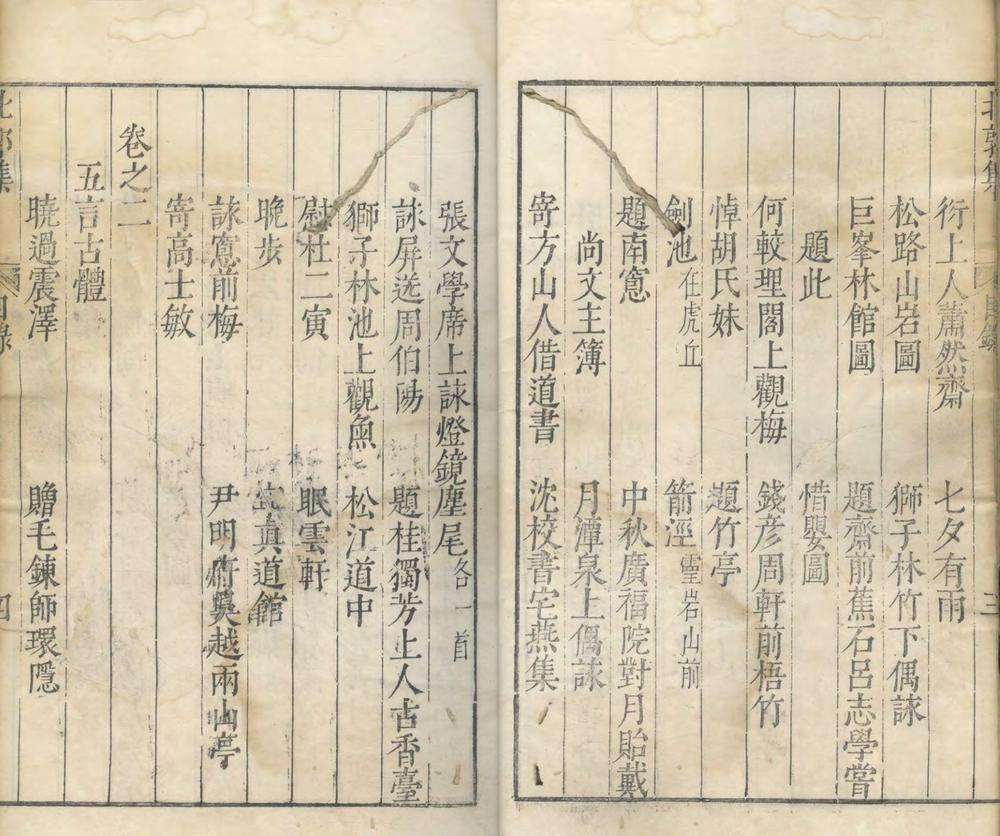 北郭集
目錄
三
衍上人蕭然齋　七夕有雨
松路山岩圖　獅子林竹下偶詠
巨峯林館圖　題齋前蕉石呂志學嘗
題此　惜嬰圖
何較理閣上觀梅　錢彦周軒前梧竹
悼胡氏妹　題竹亭
劍池在虎丘　箭涇靈岩山前
題南窻　中秋廣福院對月貽戴
尚文主簿　月潭泉上偶詠
寄方山人借道書　沈校書宅燕集
張文學席上詠燈鏡麈尾各一首
詠屏送周伯陽　題桂獨芳上人古香臺
獅子林池上觀魚　松江道中
慰杜二寅　眠雲軒
晚步　真道館
詠窻前梅　尹明府吳越兩山亭
寄高士敏
卷之二
五言古體
曉過震澤　贈毛鍊師環隱
北郭集
目錄
四